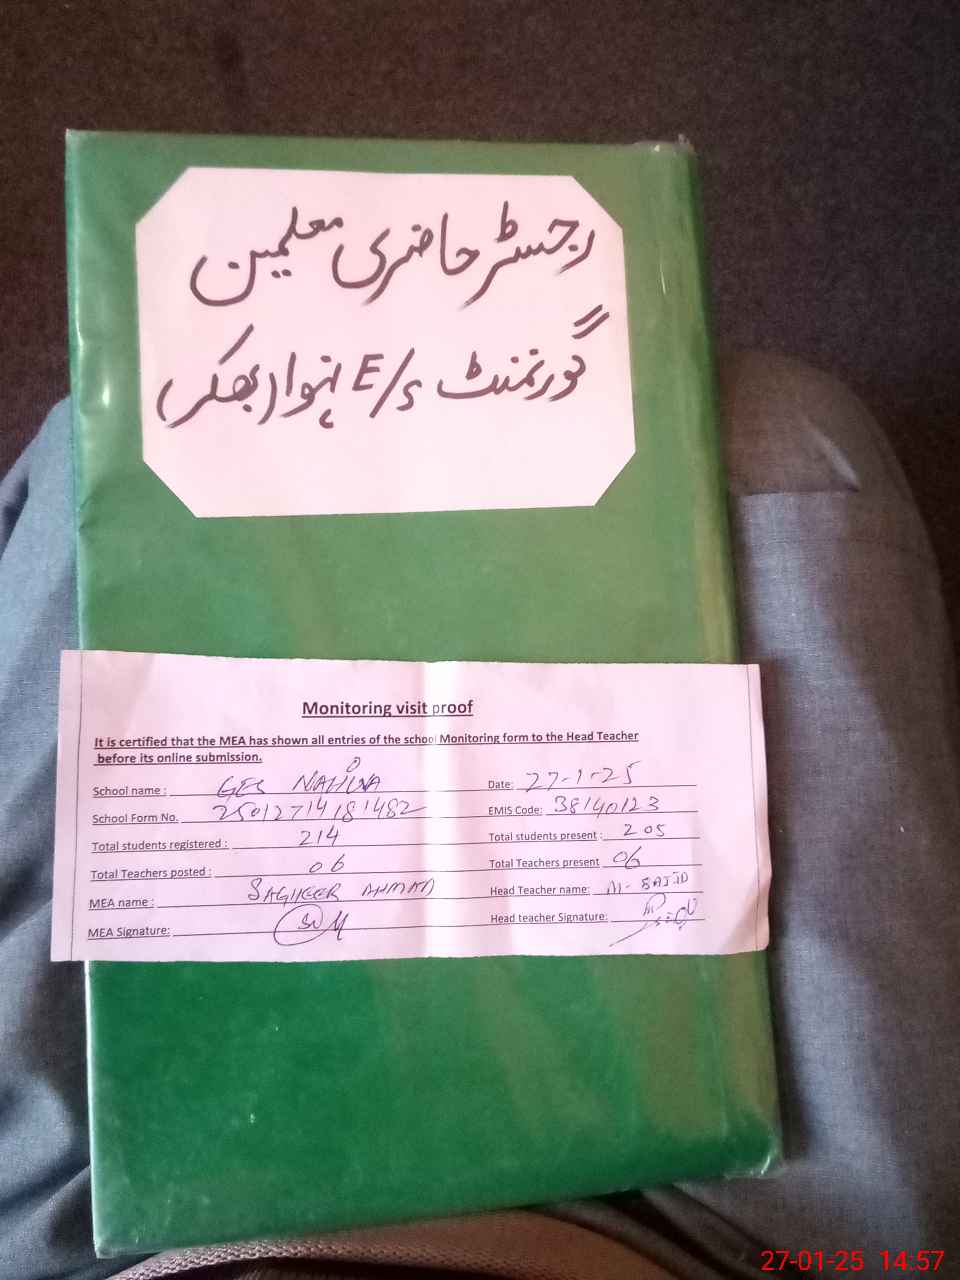 رجسٹر حاضری معلمین
گورنمنٹ E/S نہوا (بھکر)
Monitoring visit proof
It is certified that the MEA has shown all entries of the school Monitoring form to the Head Teacher
before its online submission.
School name : GES NAHUA Date: 27-1-25
School Form No. 25012714181482 EMIS Code: 38140123
Total students registered : 214 Total students present : 205
Total Teachers posted : 06 Total Teachers present 06
MEA name : SAGHEER AHMAD Head Teacher name: M. SAJID
MEA Signature: Head teacher Signature:
27-01-25 14:57